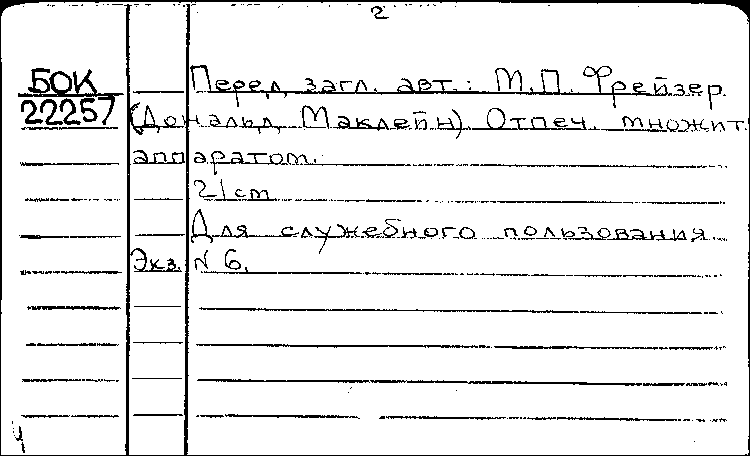 2
БОК
22257
Перед загл. авт.: М.П. Фрейзер
(Дональд Маклейн). Отпеч. множит.
аппаратом.
21 cm
Для служебного пользования.
Экз. N 6.
4